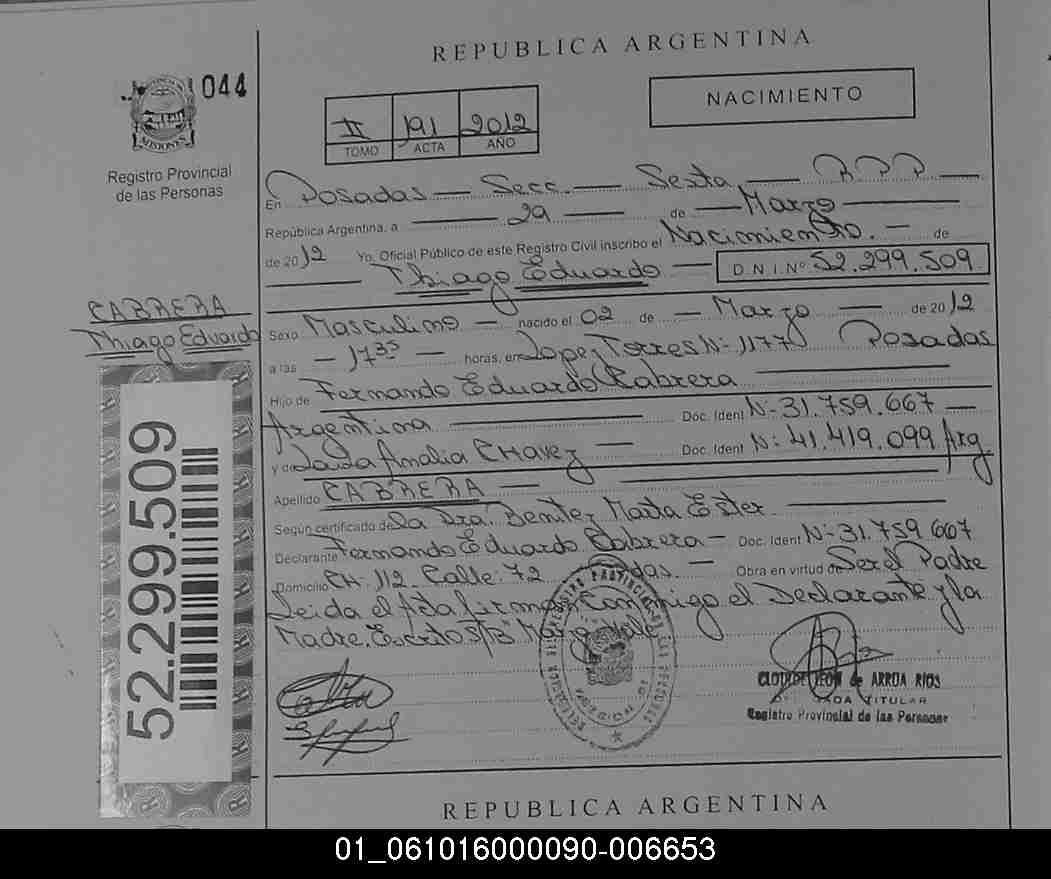 REPUBLICA ARGENTINA
044
NACIMIENTO
II 191 2012
TOMO ACTA AÑO
MISIONES
Registro Provincial
de las Personas
En Posadas — Secc. — Sexta — R.P.P. —
República Argentina, a — 29 — de — Marzo —
de 2012 Yo, Oficial Público de este Registro Civil inscribo el Nacimiento. — de
— Thiago Eduardo — D.N.I. Nº 52.299.509
CABRERA
Thiago Eduardo
Sexo Masculino — nacido el 02 de — Marzo — de 2012
a las — 17 35 — horas, en Lopez Torres Nº 1177 Posadas
Hijo de Fernando Eduardo Cabrera —
Argentina — Doc. Ident Nº 31.759.667 —
y de Amalia CHavez — Doc. Ident Nº: 41.419.099 Arg
Apellido CABRERA —
Según certificado de la Dra. Benitez Marta Ester —
Declarante Fernando Eduardo Cabrera — Doc. Ident Nº 31.759.667
Domicilio CH. 112. Calle: 72 — Obra en virtud de Ser el Padre
Leida el Acta firman Conmigo el Declarante y la
Madre.
52.299.509
CLOTILDE LEON de ARRUA RIOS
TITULAR
Registro Provincial de las Personas
REPUBLICA ARGENTINA
01_061016000090-006653